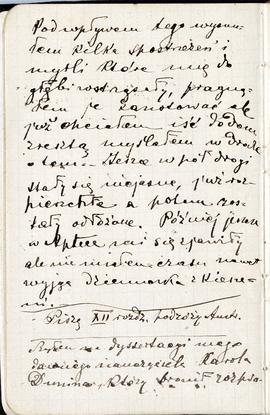 Pod wpływem tego wysnu-
łem kilka spostrzeżeń i
myśli które mię do
głębi wstrząsły, pragną-
łem je zanotować ale
już chciałem iść do domu
zresztą myślałem w drodze
o tem. Lecz w pół drogi
stały się niejasne, już roz-
pierzchłe a potem zos-
tały odłożone. Później jeszcze
w Aptece mi się zjawiły
ale nie miałem czasu nawet
wyjąć dziennika z kiesze-
ni.
Piszę XII rozdz. podróży
Byłem na dyssertacyi mego
dawnego nauczyciela Karola
Dunina, który bronił rozpra-